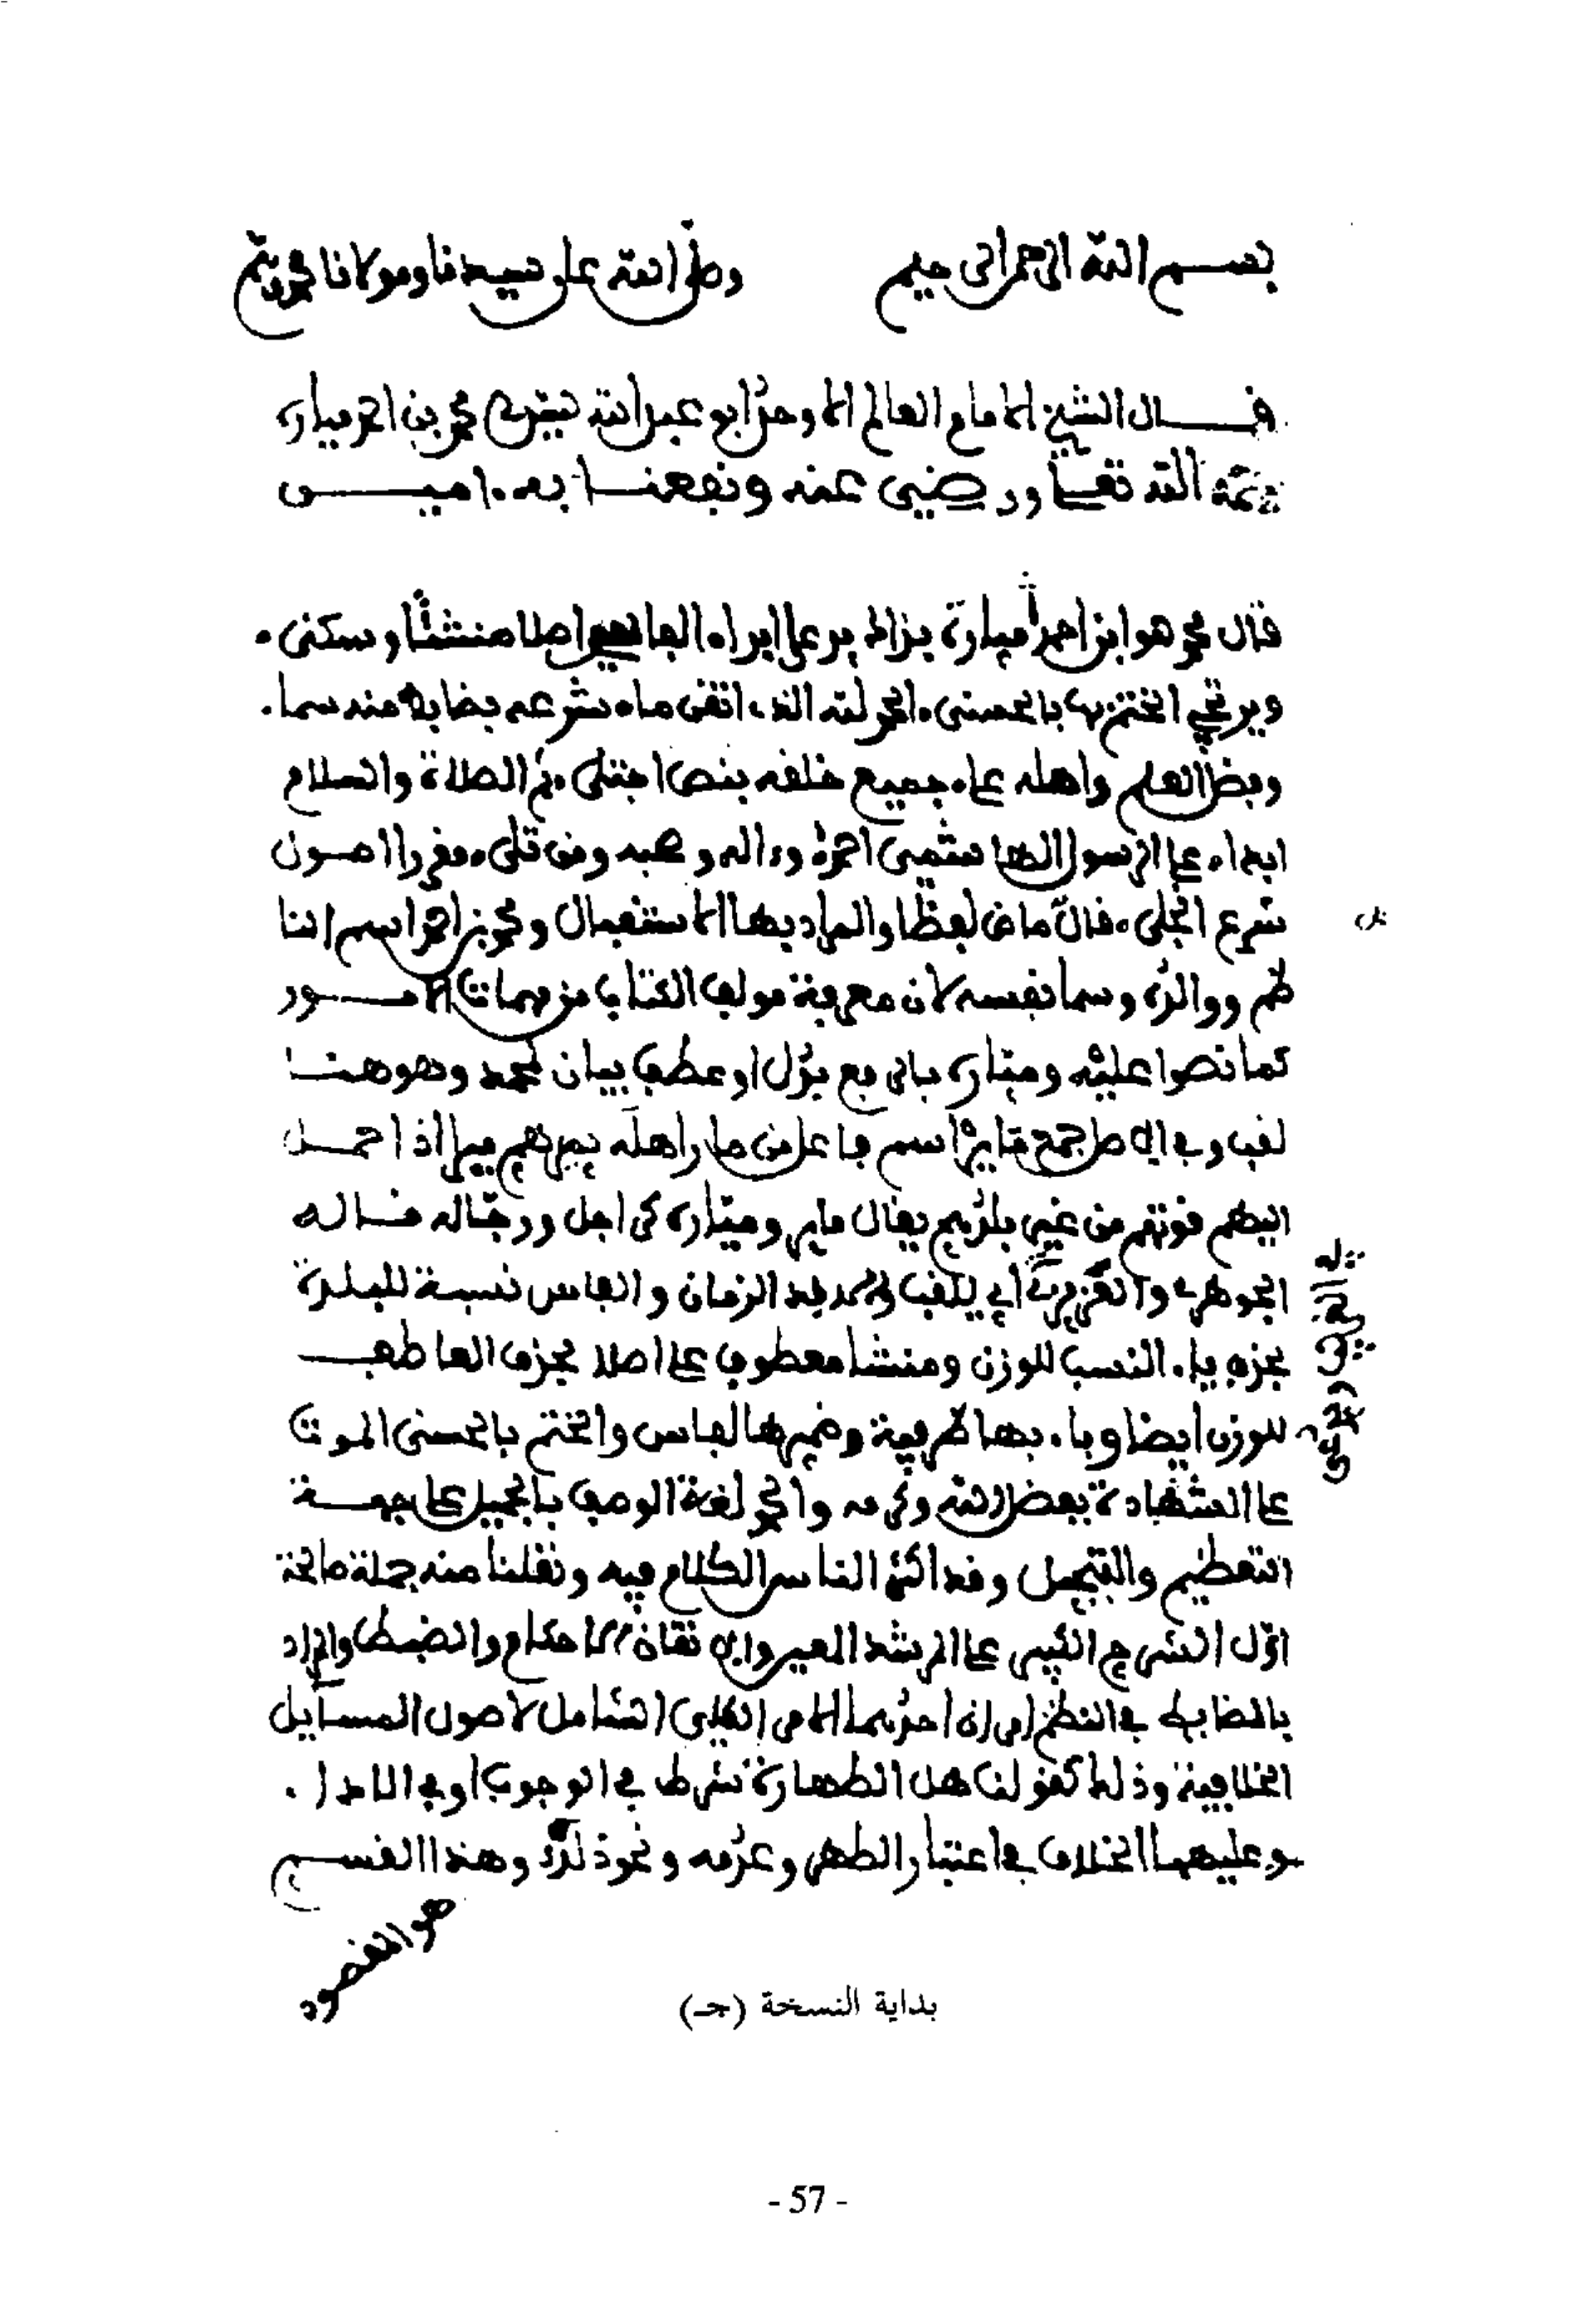 بسم الله الرحمن الرحيم وصلى الله على سيدنا ومولانا محمد وءاله
قال الشيخ الامام العالم الاوحد ابو عبد الله سيدي محمد بن احمد ميارة
رحمه الله تعالى ورضي عنه ونفعنا به ءاميـن
قال محمد هو ابن احمد ميارة بذاك يدعى الفاسي اصلا منشئا وسكنى
ويرتجي الختم بها بالحسنى الحمد لله الذي اتقن ما شرعه بضابط منه سما
وفضل العلم واهله على جميع خلقه بنص اجتلى ثم الصلاة والسلام
ابدا على الرسول المسمى احمدا وءاله وصحبه ومن تلى مقررا اصول
شرع انجلى قال ماض لفظا والمراد بها الاستقبال ومحمد بن احمد اسم الناظم
ظم ووالده وسما نفسه لان معرفة مولف الكتاب من مهمات الامـور
كما نصوا عليه وميارة بالرفع بدل او عطف بيان لمحمد وهو هنـا
لقب وفي الاصل جمع ماير اسم فاعل من مار اهله يميرهم ميرا اذا حمـل
اليهم قوتهم من غير بلدهم يقال ماير وميارة كراجل ورجالة قـاله
الجوهري والفاسي نسبة للبلدة
بحذف ياء النسب للوزن ومنشا معطوف على اصلا بحذف العاطف
للوزن ايضا وباء بها ظرفية وضميرها لفاس والختم بالحسنى الموت
على الشهادة بفضل الله وكرمه والحمد لغة الوصف بالجميل على جهـة
التعظيم والتبجيل وقد اكثر الناس الكلام فيه ونقلنا منه جملة صالحة
اول الشرح الكبير على المرشد المعين واتقان الاحكام والضبط والمراد
بالضابط في النظم امران احدهما الامر الكلي الشامل لاصول المسايل
الخلافية وذلك كقولنا هل الطهارة شرط في الوجوب او في الاداء
وعليهما الخلاف في اعتبار الطهر وعدمه ونحو ذلك وهذا القسـم
هو المقصود
بداية النسخة (جـ)
- 57 -